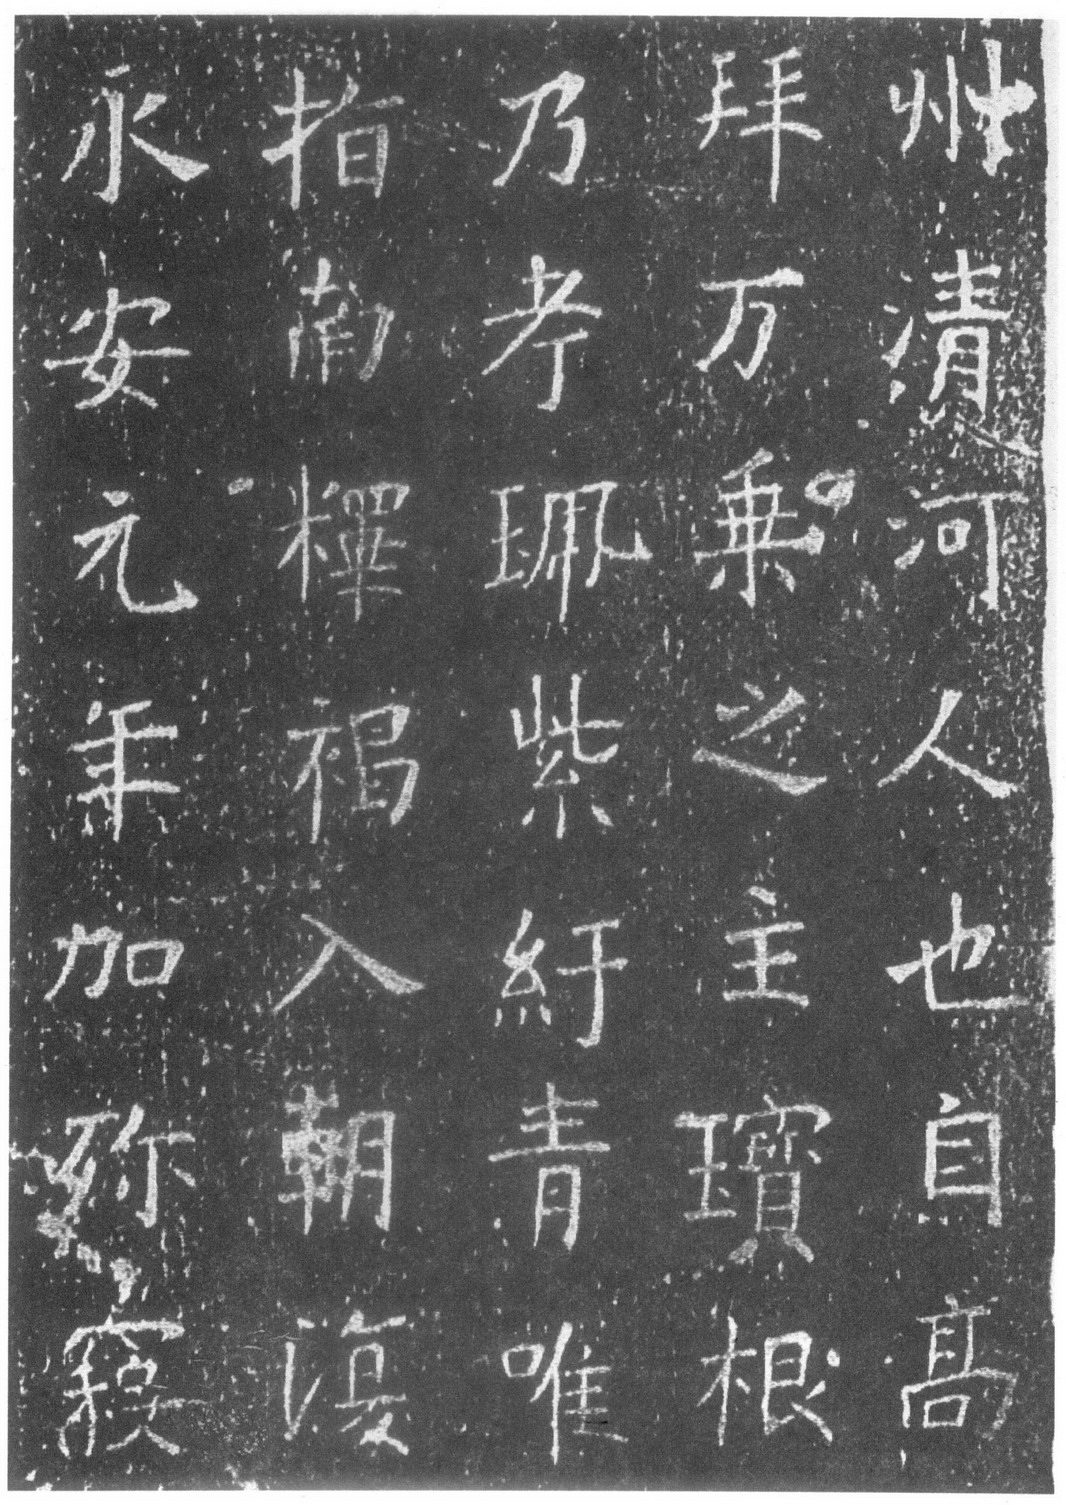 州清河人也自高
拜万乗之主璸根
乃考珮紫紆青唯
指南釋褐入朝復
永安元年加殄寇